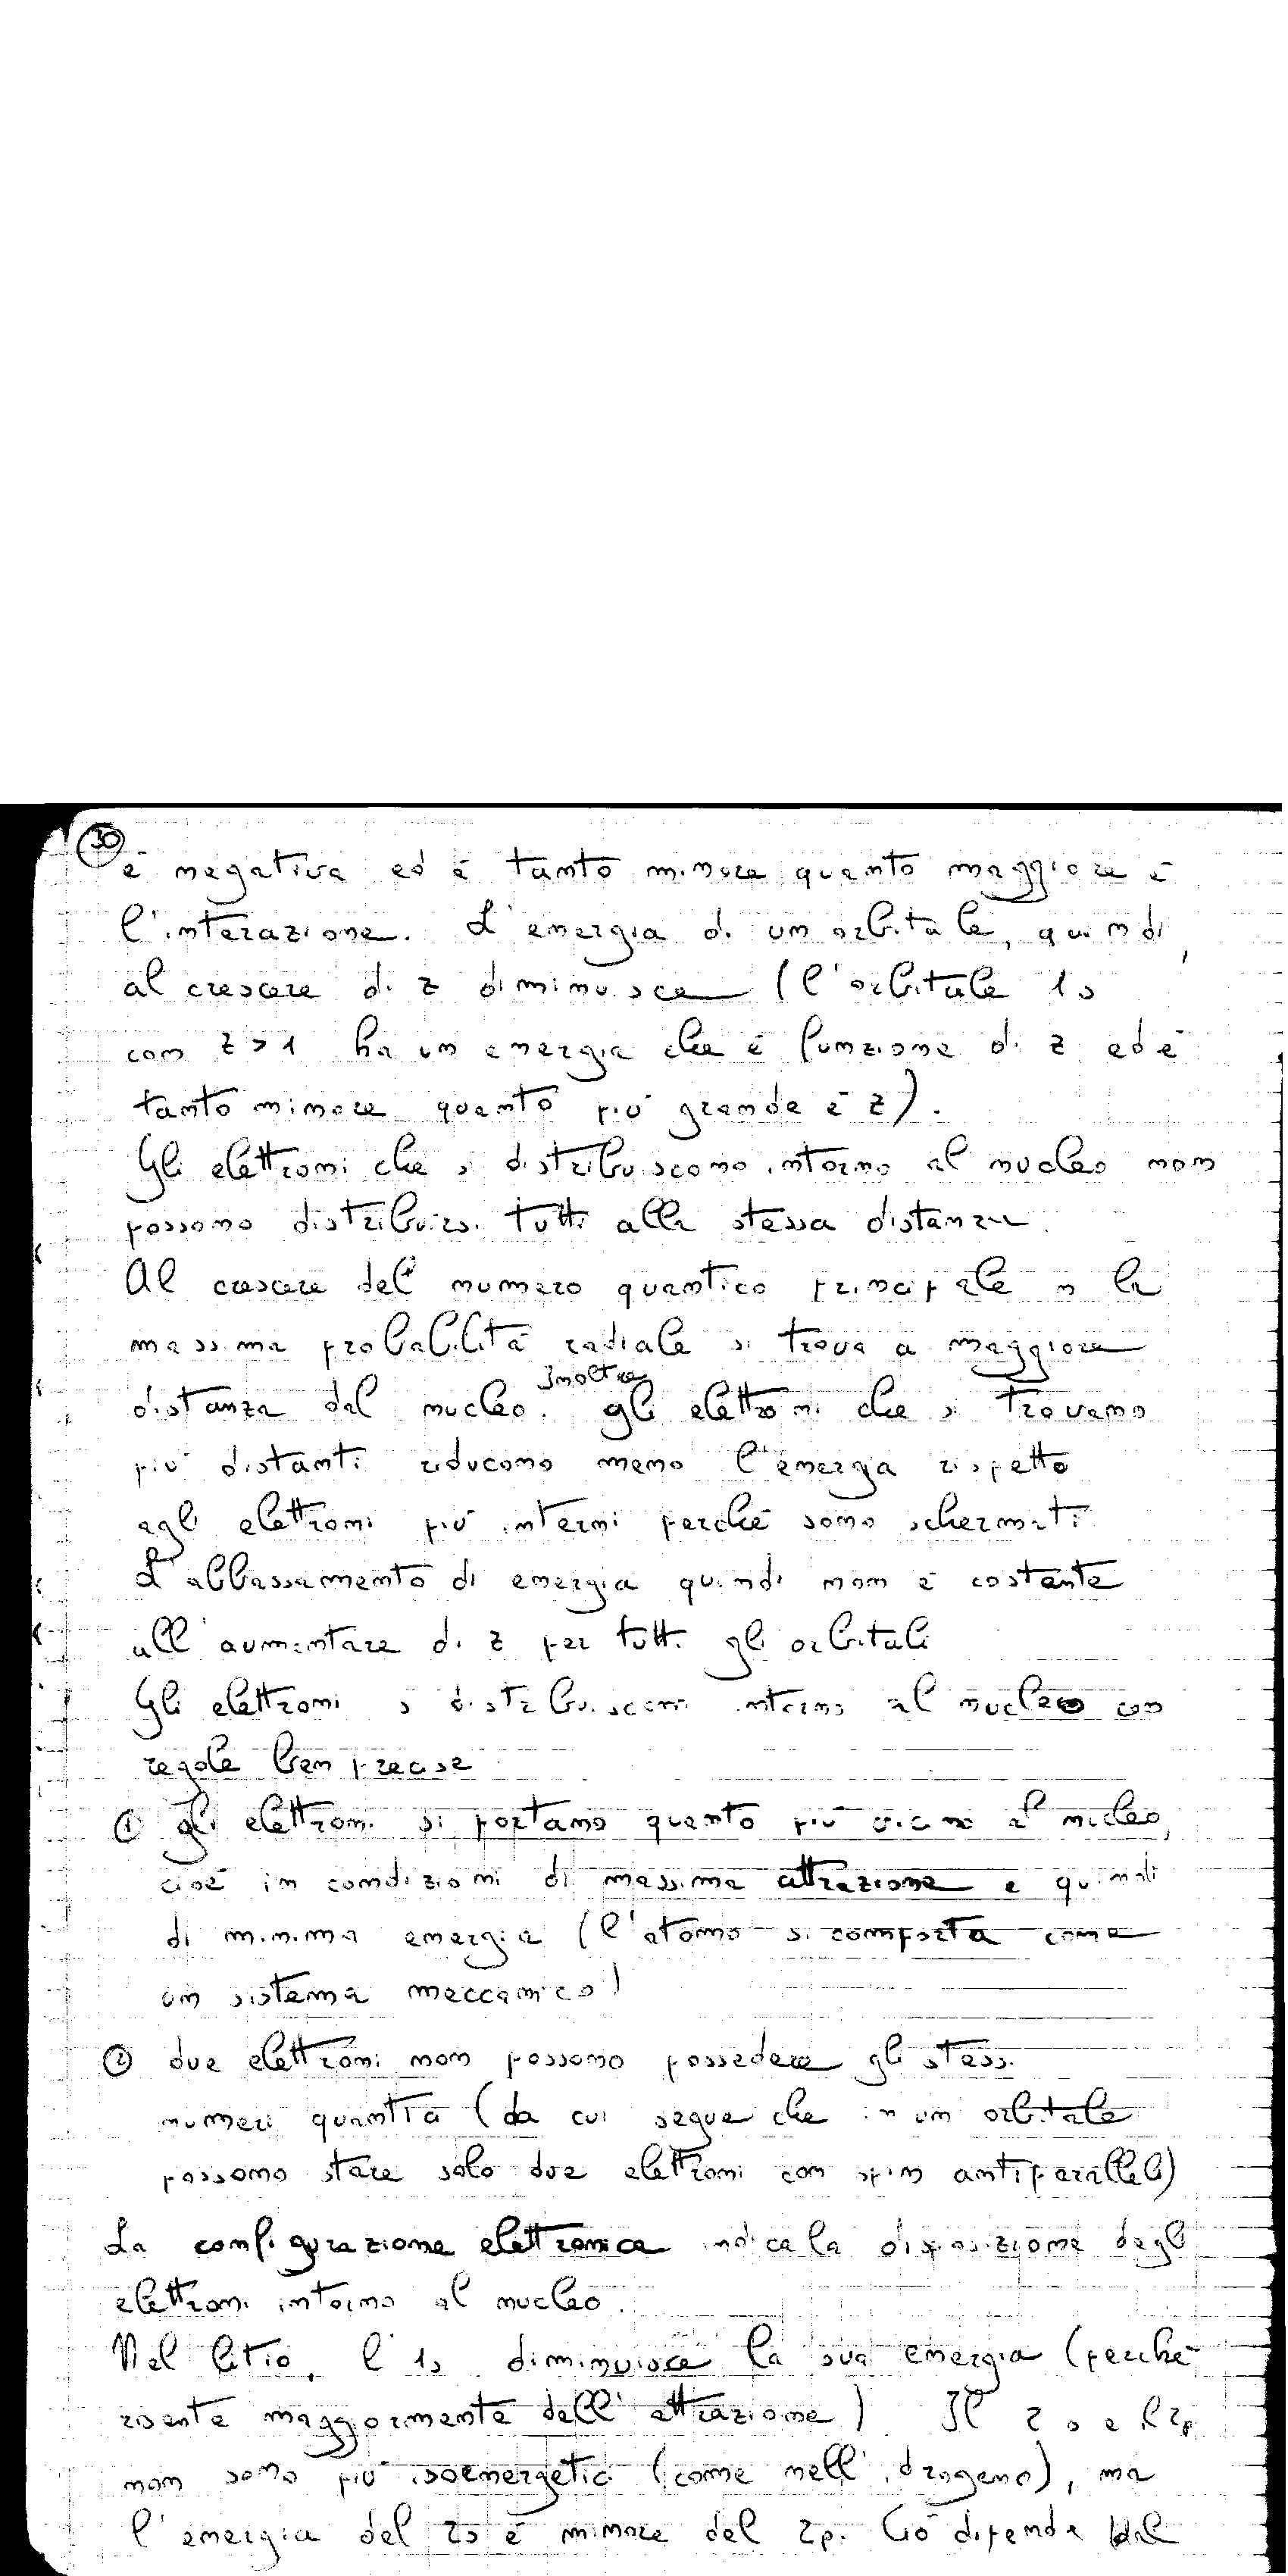 30
è negativa ed è tanto minore quanto maggiore è
l'interazione. L'energia di un orbitale, quindi,
al crescere di z diminuisce (l'orbitale 1s
con z > 1 ha un energia che è funzione di z ed è
tanto minore quanto più grande è z).
Gli elettroni che si distribuiscono intorno al nucleo non
possono distribuirsi tutti alla stessa distanza.
Al crescere del numero quantico principale n la
massima probabilità radiale si trova a maggiore
Inoltre
distanza dal nucleo. gli elettroni che si trovano
più distanti riducono meno l'energia rispetto
agli elettroni più interni perché sono schermati
L'abbassamento di energia quindi non è costante
all'aumentare di z per tutti gli orbitali
Gli elettroni si distribuiscono intorno al nucleo con
regole ben precise
① gli elettroni si portano quanto più vicino al nucleo,
cioè in condizioni di massima attrazione e quindi
di minima energia (l'atomo si comporta come
un sistema meccanico)
② due elettroni non possono possedere gli stessi
numeri quantici (da cui segue che in un orbitale
possono stare solo due elettroni con spin antiparalleli)
La configurazione elettronica indica la disposizione degli
elettroni intorno al nucleo.
Nel litio, l'1s diminuisce la sua energia (perché
risente maggiormente dell'attrazione). Il 2s e il 2p
non sono più isoenergetici (come nell'idrogeno), ma
l'energia del 2s è minore del 2p. Ciò dipende dal